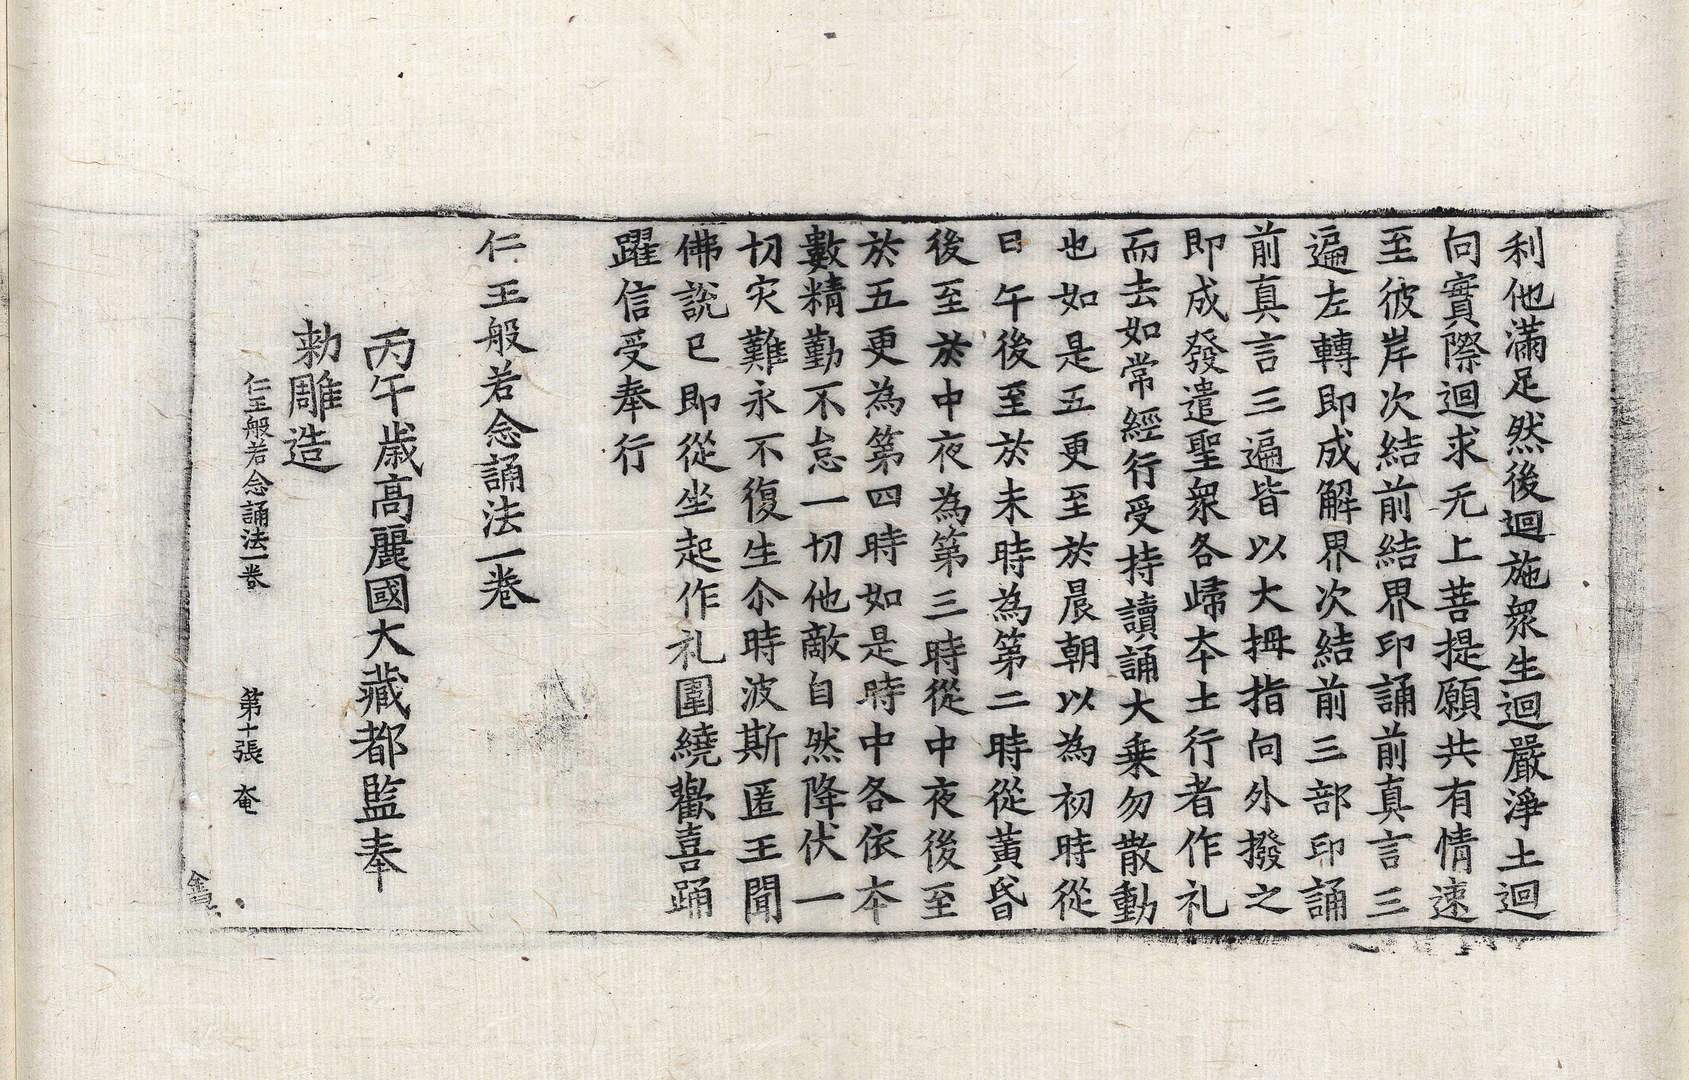 利他滿足然後迴施衆生迴嚴淨土迴
向實際迴求无上菩提願共有情速
至彼岸次結前結界印誦前真言三
遍左轉即成解界次結前三部印誦
前真言三遍皆以大拇指向外撥之
即成發遣聖衆各歸夲土行者作礼
而去如常經行受持讀誦大乗勿散動
也如是五更至於晨朝以為初時從
日午後至於未時為第二時從黃昏
後至於中夜為第三時從中夜後至
於五更為第四時如是時中各依夲
數精勤不怠一切他敵自然降伏一
切灾難永不復生尒時波斯匿王聞
佛說已即從坐起作礼圍繞歡喜踊
躍信受奉行
仁王般若念誦法一卷
丙午歲高麗國大藏都監奉
勅雕造
仁王般若念誦法一卷 第十張 奄